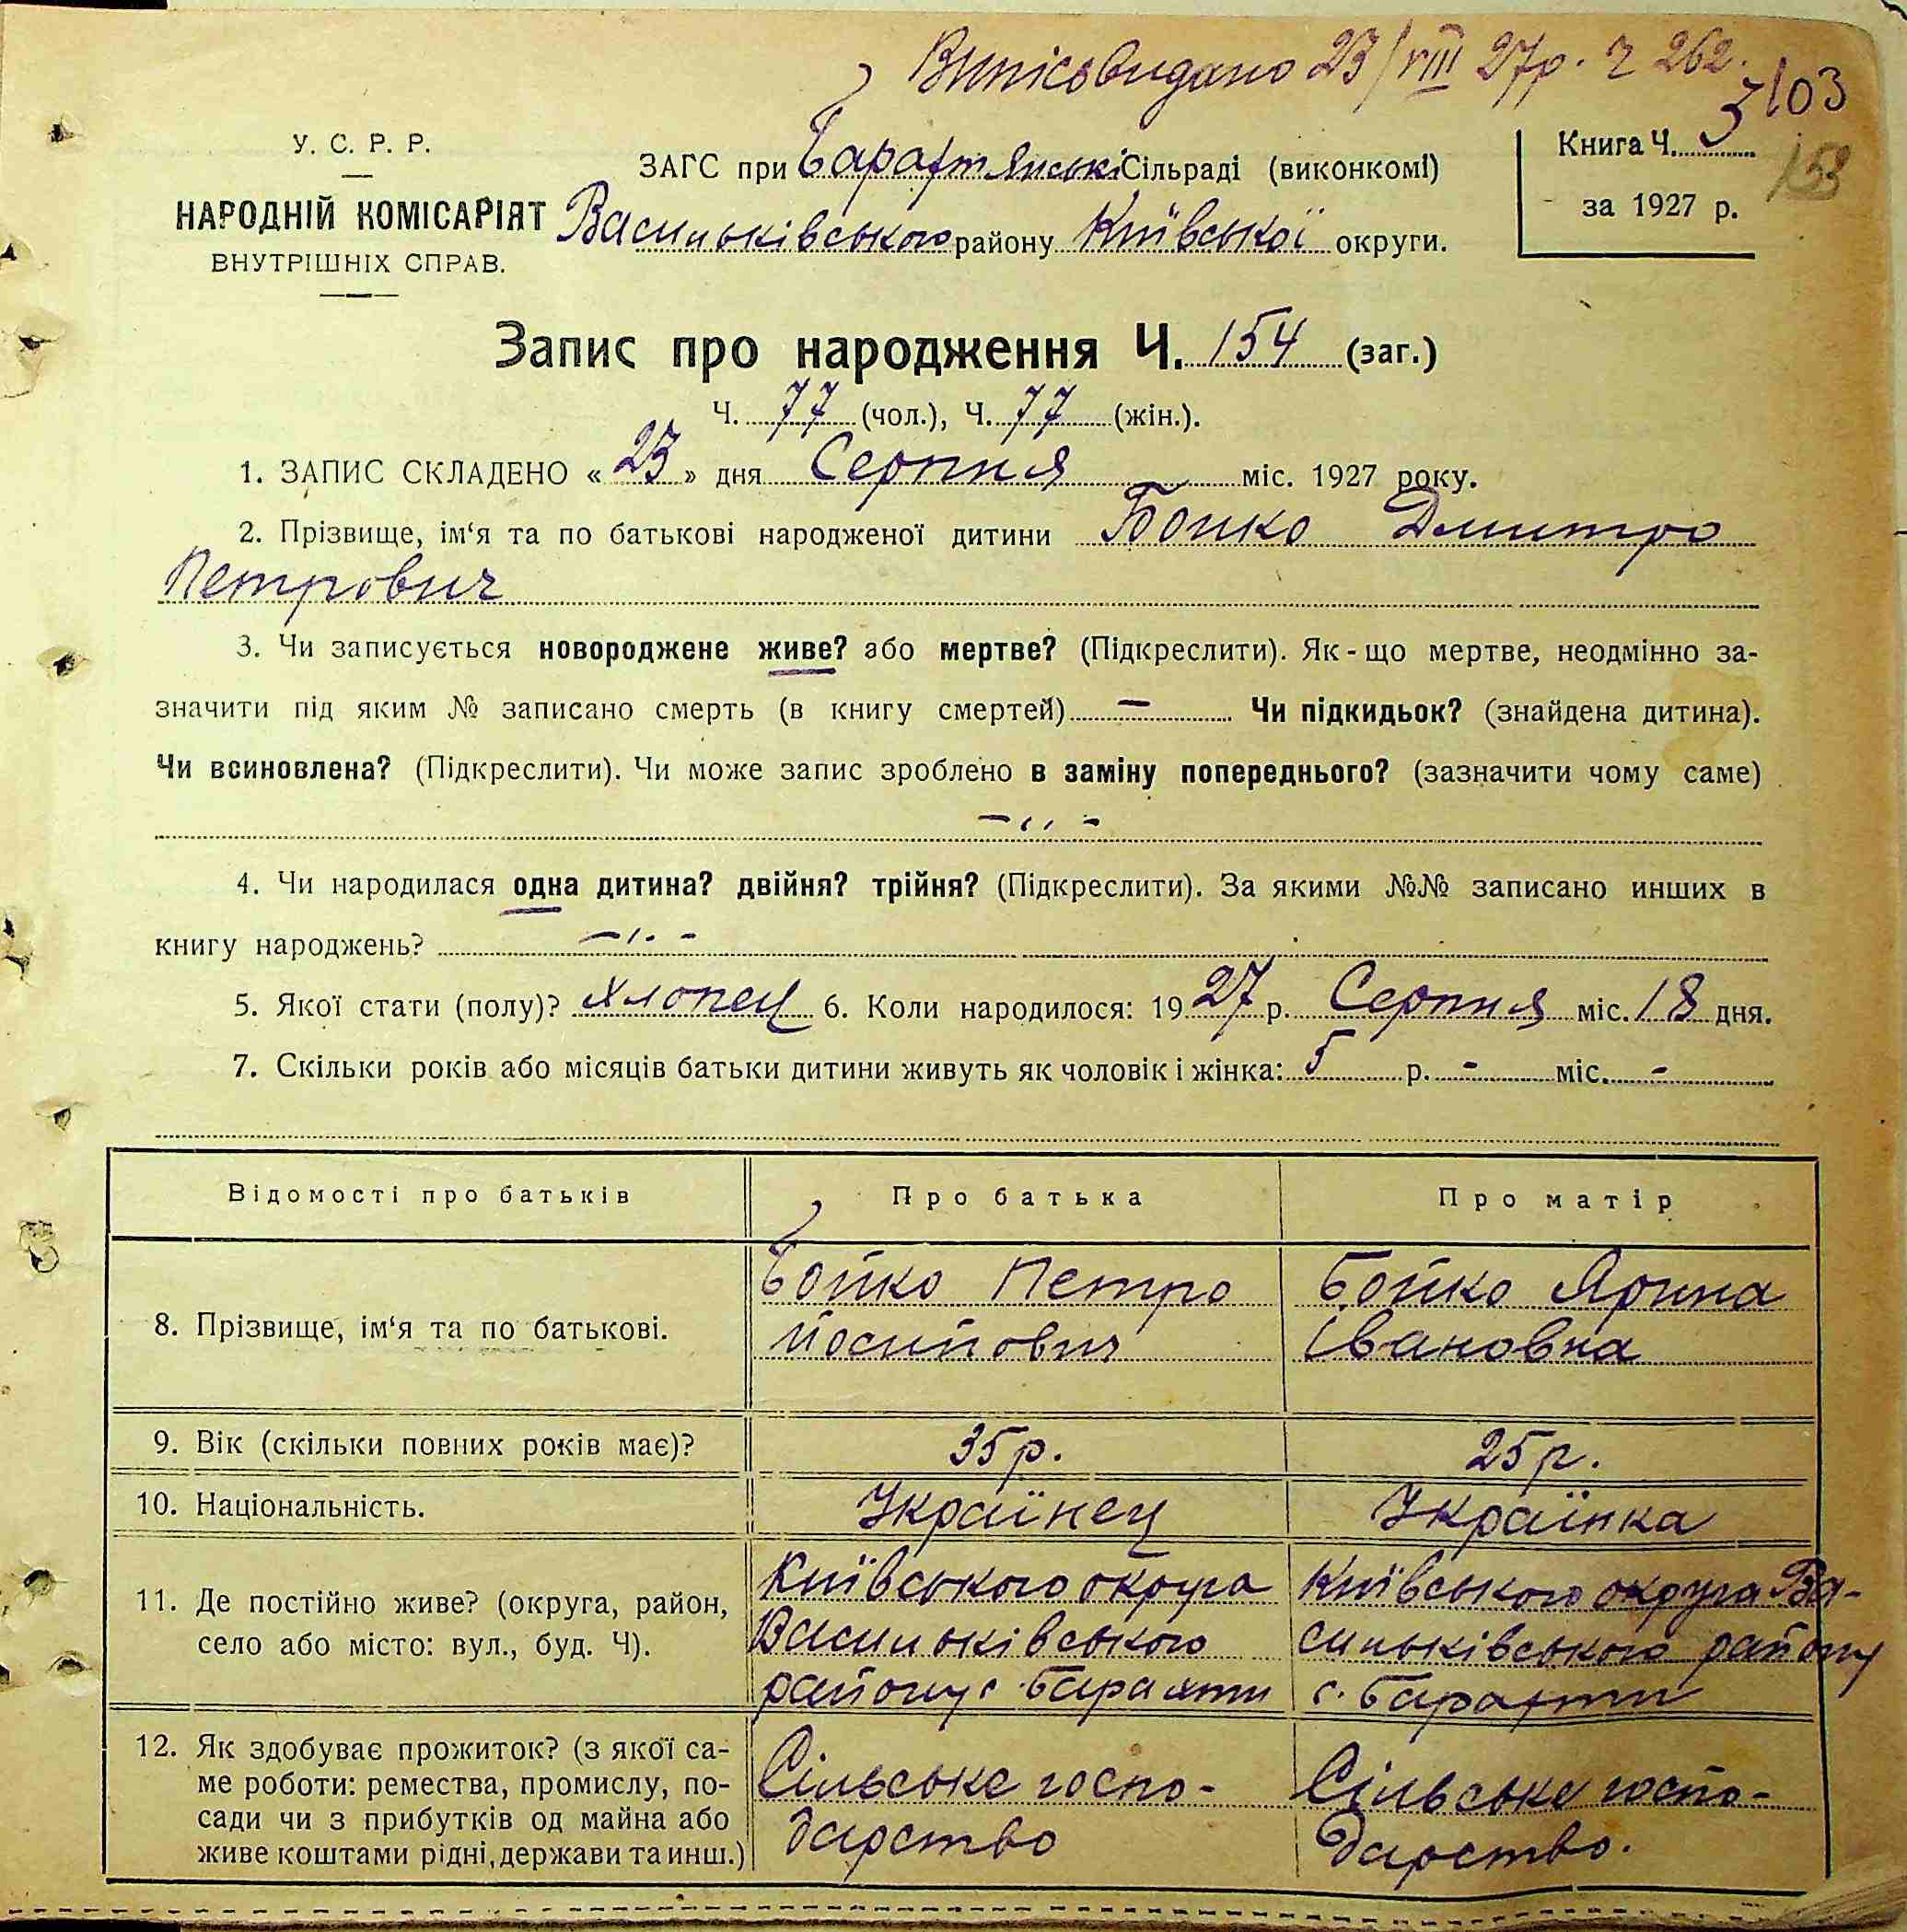 Випісь видано 23/VIII 27р. Ч 262.
103
153
У. С. Р. Р.
НАРОДНІЙ КОМІСАРІЯТ
ВНУТРІШНІХ СПРАВ.
ЗАГС при Барахтянські Сільраді (виконкомі)
Васильківського району Київської округи.
Книга Ч. 3
за 1927 р.
Запис про народження Ч. 154 (заг.)
Ч. 77 (чол.), Ч. 77 (жін.).
1. ЗАПИС СКЛАДЕНО « 23 » дня Серпня міс. 1927 року.
2. Прізвище, ім‘я та по батькові народженої дитини Бойко Дмитро
Петрович
3. Чи записується новороджене живе? або мертве? (Підкреслити). Як-що мертве, неодмінно за-
значити під яким № записано смерть (в книгу смертей) — Чи підкидьок? (знайдена дитина).
Чи всиновлена? (Підкреслити). Чи може запис зроблено в заміну попереднього? (зазначити чому саме)
–„–
4. Чи народилася одна дитина? двійня? трійня? (Підкреслити). За якими №№ записано инших в
книгу народжень? –„–
5. Якої стати (полу)? Хлопец 6. Коли народилося: 1927 р. Серпня міс. 18 дня.
7. Скільки років або місяців батьки дитини живуть як чоловік і жінка: 5 р. - міс. -
Відомості про батьків Про батька Про матір
8. Прізвище, ім‘я та по батькові.
Бойко Петро
Йосипович
Бойко Ярина
Івановна
9. Вік (скільки повних років має)? 35 р. 25 р.
10. Національність. Українец Українка
11. Де постійно живе? (округа, район,
село або місто: вул., буд. Ч).
Київського округа
Васильківського
району с. Барахти
Київського округа Ва-
сильківського району
с. Барахти
12. Як здобуває прожиток? (з якої са-
ме роботи: ремества, промислу, по-
сади чи з прибутків од майна або
живе коштами рідні, держави та инш.)
Сільське госпо-
дарство
Сільське госпо-
дарство.